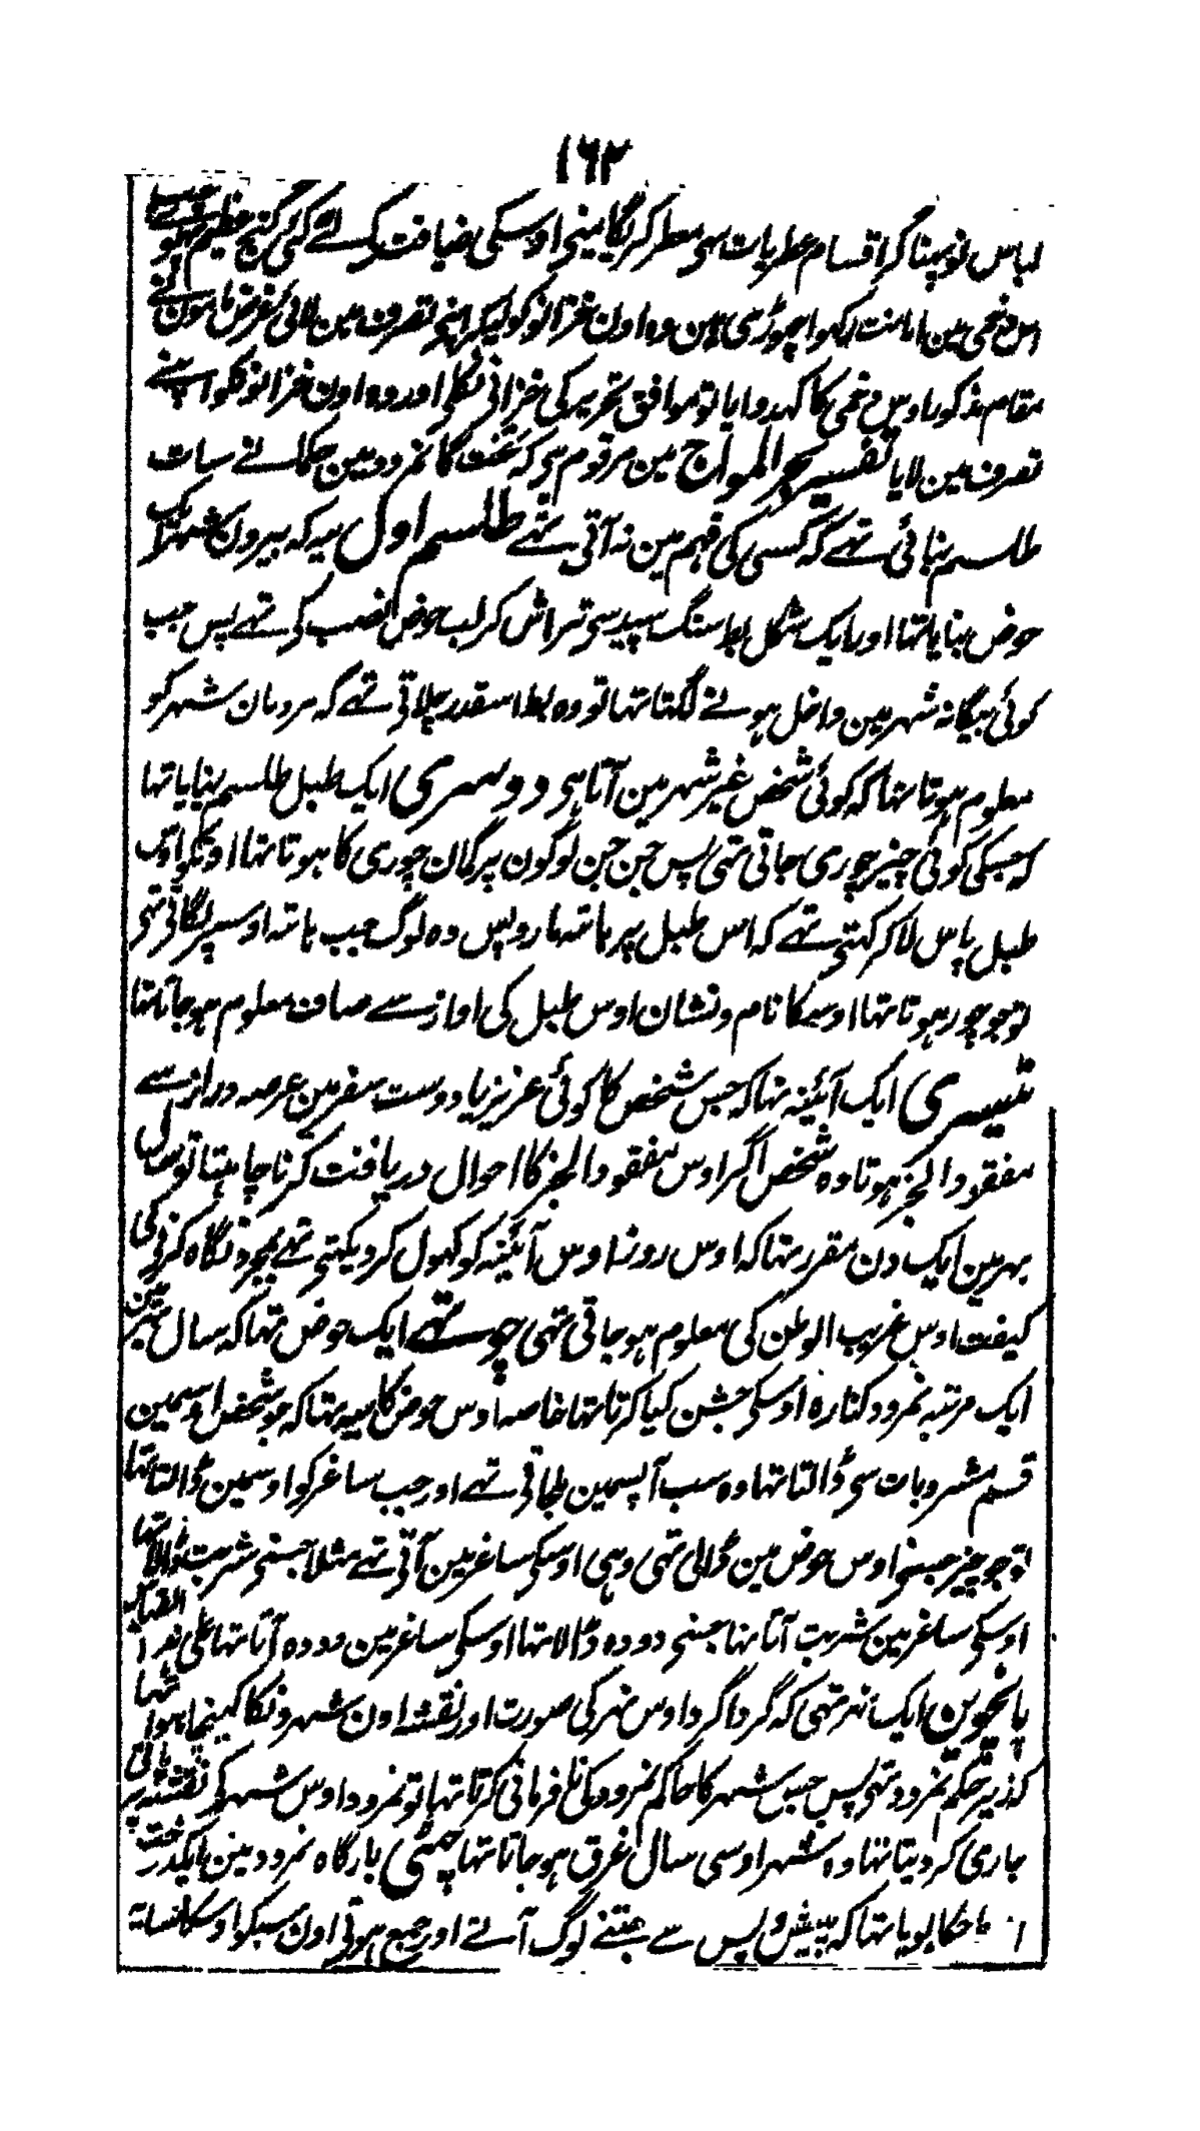 ۱۶۲
لباس نو پہنا کر اقسام عطریات سی معطر کریگا مینی اوسکی ضیافت کے لئے کئی گنج عظیم
اس دخمی مین امانت رکھوا چھوڑی ہین وہ اون خزانونکو لیکر اپنی تصرف مین لائی غرض مامون نے
مقام مذکور اوس دخمی کا کہدوایا تو موافق تحریر کی خزانی نکلی اور وہ اون خزانونکو اپنے
تصرف مین لایا تفسیر بحر المواج مین مرقوم ہی کہ تخت گاہ نمرود مین حکما نے سات
طلسم بنائی تہے کہ کسی کی فہم مین نہ آتی تہے طلسم اول یہ کہ بیرون شہر ایک
حوض بنایا تہا اور ایک شکل بط سنگ سپید سی تراش کر لب حوض نصب کی تہے پس جب
کوئی بیگانہ شہر مین داخل ہونے لگتا تہا تو وہ بط اسقدر چلاتی تہے کہ مردمان شہر کو
معلوم ہوتا تہا کہ کوئی شخص غیر شہر مین آتا ہی دوسری ایک طبل طلسم بنایا تہا
کہ جسکی کوئی چیز چوری جاتی تہی پس جن جن لوگون پر گمان چوری کا ہوتا تہا اونکو اوس
طبل پاس لا کر کہتی تہے کہ اس طبل پر ہاتہ مارو پس وہ لوگ جب ہاتہ اوسپر لگاتی تہی
تو جو چور ہوتا تہا اوسکا نام و نشان اوس طبل کی اواز سے صاف معلوم ہو جاتا تہا
تیسری ایک آئینہ تہا کہ جس شخص کا کوئی عزیز یا دوست سفر مین عرصہ دراز سے
مفقود الخبر ہوتا وہ شخص اگر اوس مفقود الخبر کا احوال دریافت کرنا چاہتا تو سال
بہر مین ایک دن مقرر تہا کہ اوس روز اوس آئینہ کو کہول کر دیکہتی تہے بمجرد نگاہ کرنی کی
کیفیت اوس غریب الوطن کی معلوم ہو جاتی تہی چوتہے ایک حوض تہا کہ سال بہر مین
ایک مرتبہ نمرود کنارہ اوسکی جشن کیا کرتا تہا خاصہ اوس حوض کا یہ تہا کہ جو شخص اوسمین
قسم مشروبات سی ڈالتا تہا وہ سب آپسمین ملجاتی تہے اور جب ساغر کو اوسمین ڈالتا تہا
تو جو چیز جسنی اوس حوض مین ڈالی تہی وہی اوسکی ساغر مین آتی تہے مثلا جسنی شربت ڈالا تہا
اوسکی ساغر مین شربت آتا تہا جسنی دودہ ڈالا تہا اوسکی ساغر مین دودہ آتا تہا علی ہذا القیاس
پانچوین ایک نہر تہی کہ گردا گرد اوس نہر کی صورت اور نقشہ اون شہرونکا کہینچا ہوا تہا
کہ زیر حکم نمرود تہی پس جس شہر کا حاکم نمرود کی نافرمانی کرتا تہا تو نمرود اوس شہر کی نقشہ پر پانی
جاری کر دیتا تہا وہ شہر اوسی سال غرق ہو جاتا تہا چہٹی بارگاہ نمرود مین ایک درخت
بویا تہا کہ پیش و پس سے جتنے لوگ آتے اور جمع ہوتی اون سبکو اوسکا سایہ